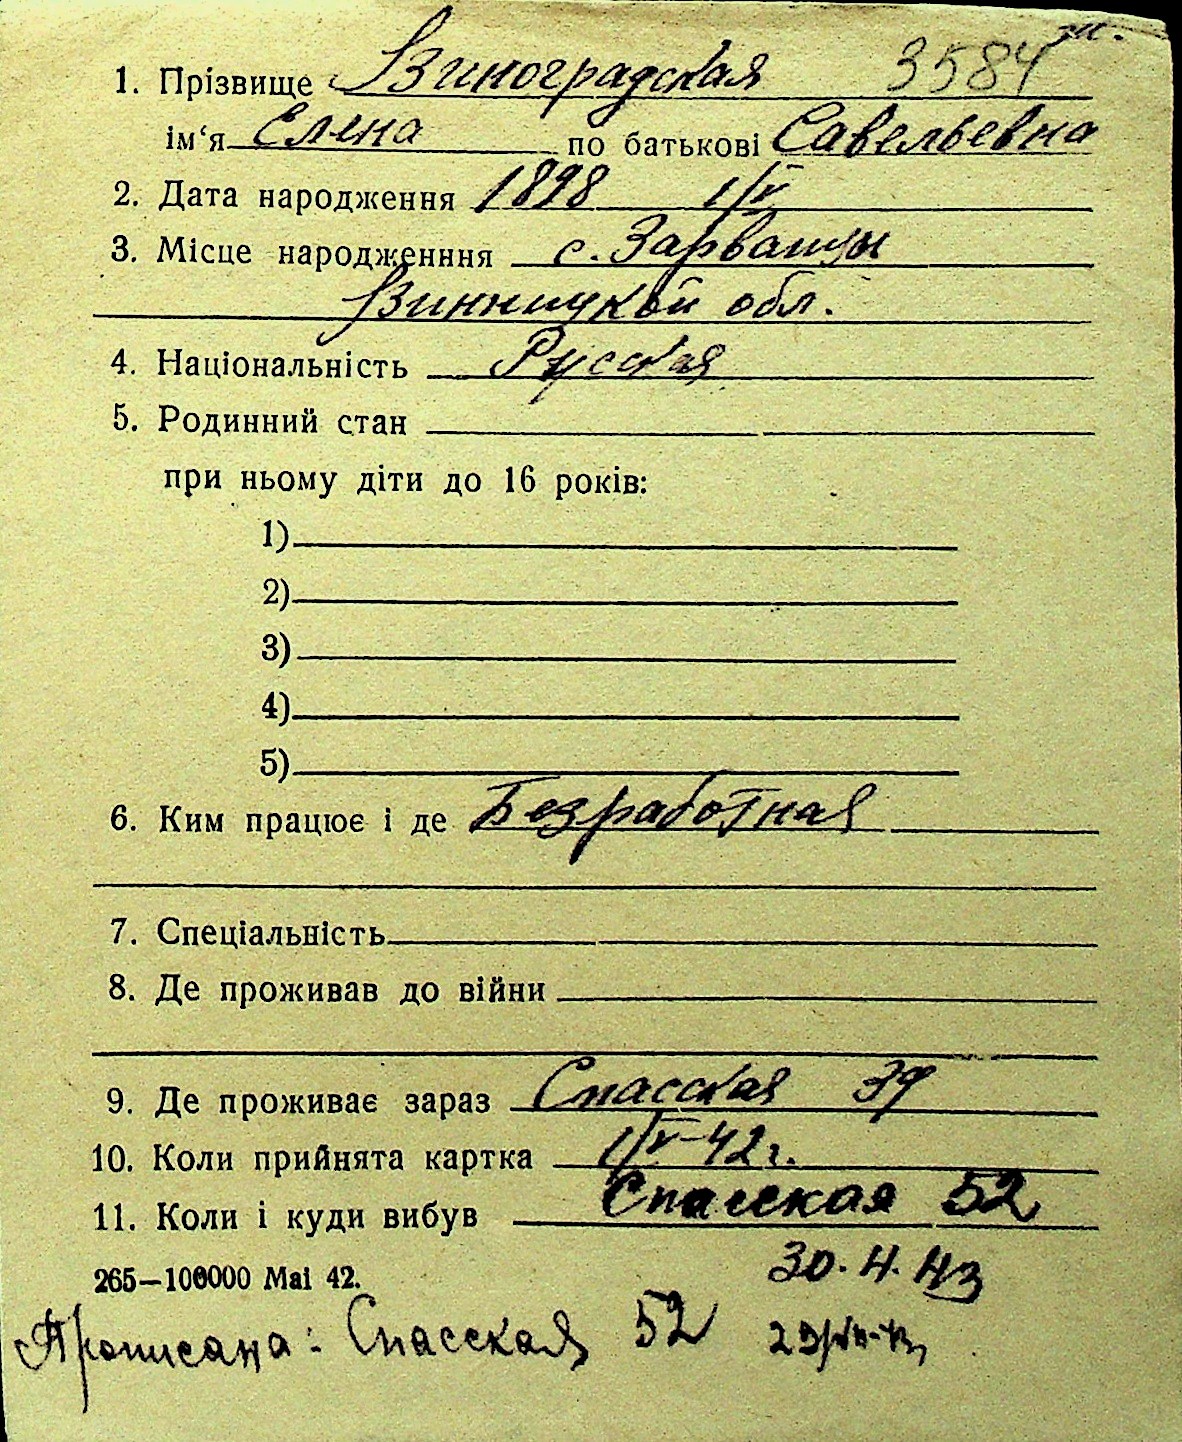 1. Прізвище Виноградская 3584
ім‘я Елена по батькові Савельевна
2. Дата народження 1898 1/V
3. Місце народженння с. Зарванцы
Винницкой обл.
4. Національність Русская
5. Родинний стан
при ньому діти до 16 років:
1)
2)
3)
4)
5)
6. Ким працює і де Безработная
7. Спеціальність
8. Де проживав до війни
9. Де проживає зараз Спасская 39
10. Коли прийнята картка 1/V-42 г.
11. Коли і куди вибув Спасская 52
265—100000 Mai 42. 30.4.43
Прописана: Спасская 52